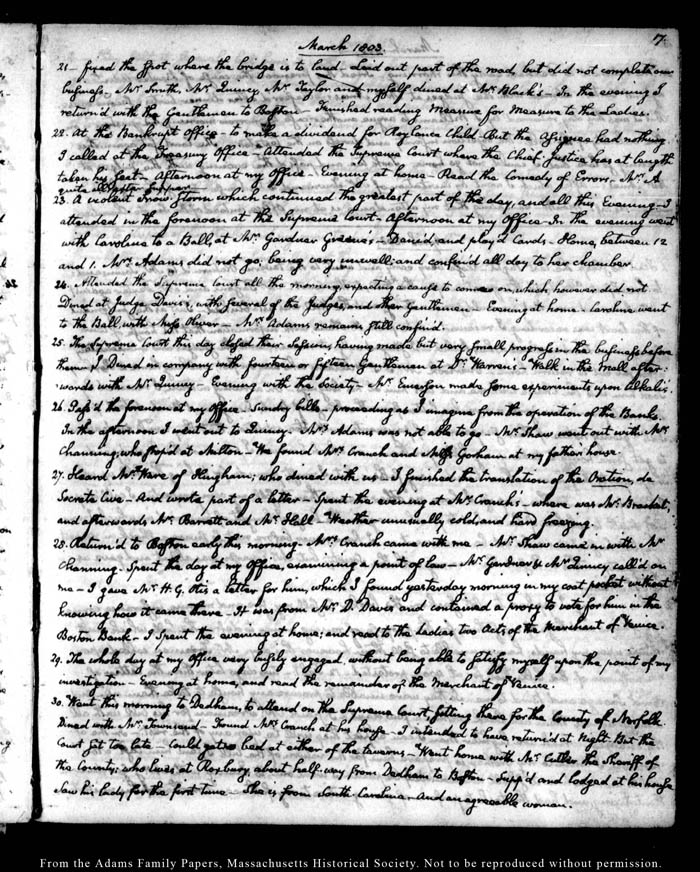 17.
March 1803.
21— fixed the spot where the bridge is to land. Laid out part of the road, but did not complete our
business. Mr. Smith, Mr. Quincy, Mr. Taylor and myself dined at Mr. Black's— In the evening I
return'd with the Gentlemen to Boston— Finished reading Measure for Measure to the Ladies.
22. At the Bankrupt Office— to make a dividend for child— But the assignees had nothing
I called at the Treasury Office— Attended the Supreme Court where the Chief Justice has at length
taken his seat— Afternoon at my Office— Evening at home— Read the Comedy of Errors— Mrs. A
quite ill after supper
23. A violent snow storm which continued the greatest part of the day, and all this Evening— I
attended in the forenoon at the Supreme Court— Afternoon at my Office— In the evening went
with Caroline to a Ball, at Mr. Gardner Greene's— Danc'd, and play'd Cards— Home, between 12
and 1. Mrs. Adams did not go; being very unwell; and confin'd all day to her chamber.
24. Attended the Supreme Court all the morning, expecting a cause to come on, which however did not
Dined at Judge Davis's, with several of the Judges, and other Gentlemen— Evening at home. Caroline went
to the Ball, with Miss Oliver— Mrs. Adams remains still confin'd.
25. The Supreme Court this day closed their Session, having made but very small progress in the business before
them— I Dined in company with fourteen or fifteen Gentlemen at Dr. Warren's— Walk in the Mall after-
wards with Mr. Quincy— Evening with the Society— Mr. Emerson made some experiments upon alkalis.
26. Pass'd the forenoon at my Office— Sundry bills— proceeding as I imagine from the operation of the Banks.
In the afternoon I went out to Quincy. Mrs. Adams was not able to go— Mr. Shaw went out with Mr.
Channing; who stop'd at Milton— We found Mrs. Cranch and Miss Gorham at my father's house.
27. Heard Mr. Ware of Hingham; who dined with us— I finished the translation of the Oration, de
Socrate Cive— And wrote part of a letter— Spent the evening at Mr. Cranch's— where was Mr. Bracket;
and afterwards Mr. Barrett and Mr. Hall— Weather unusually cold, and hard freezing.
28. Return'd to Boston early this morning— Mrs. Cranch came with me— Mr. Shaw came in with Mr.
Channing. Spent the day at my Office, examining a point of law— Mr. Gardner & Mr. Quincy call'd on
me— I gave Mr. H. G. Otis a letter for him, which I found yesterday morning in my coat pocket without
knowing how it came there— It was from Mr. D. Davis and contained a proxy to vote for him in the
Boston Bank— I spent the evening at home; and read to the Ladies two Acts of the Merchant of Venice.
29. The whole day at my Office very busily engaged, without being able to satisfy myself upon the point of my
investigation— Evening at home, and read the remainder of the Merchant of Venice.
30. Went this morning to Dedham, to attend on the Supreme Court, sitting there for the County of Norfolk.
Dined with Mr. Townsend— Found Mrs. Cranch at his house— I intended to have return'd at Night. But the
Court sat too late— Could get no bed at either of the taverns. Went home with Mr. Cutler the Sheriff of
the County; who lives at Roxbury, about half way from Dedham to Boston— Supp'd and lodged at his house
Saw his lady for the first time— She is from South-Carolina— And an agreeable woman.
From the Adams Family Papers, Massachusetts Historical Society. Not to be reproduced without permission.